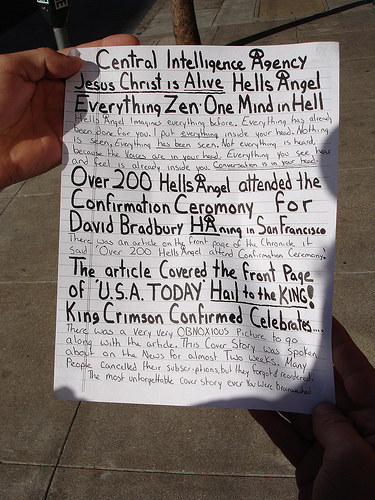 Central Intelligence Agency
Jesus Christ is Alive Hells Angel
Everything Zen One Mind in Hell
Hells Angel Imagines everything before. Everything has already
been done for you. I put everything inside your head. Nothing
is seen, Everything has been seen. Not everything is heard,
because the voices are in your head. Everything you see hear
and feel is already inside you. Conversation is in your head.
Over 200 Hells Angel attended the
Confirmation Ceremony for
David Bradbury HAning in San Francisco
There was an article on the front page of the Chronicle it
said "Over 200 Hells Angel attend Confirmation Ceremony."
The article Covered the front Page
of "U.S.A. TODAY" Hail to the KING!
King Crimson Confirmed Celebrates....
There was a very very OBNOXIOUS Picture to go
along with the article. This Cover Story was spoken
about on the News for almost Two Weeks. Many
People cancelled their subscriptions, but they forgot & reordered.
The most unforgettable cover story ever You were brainwashed